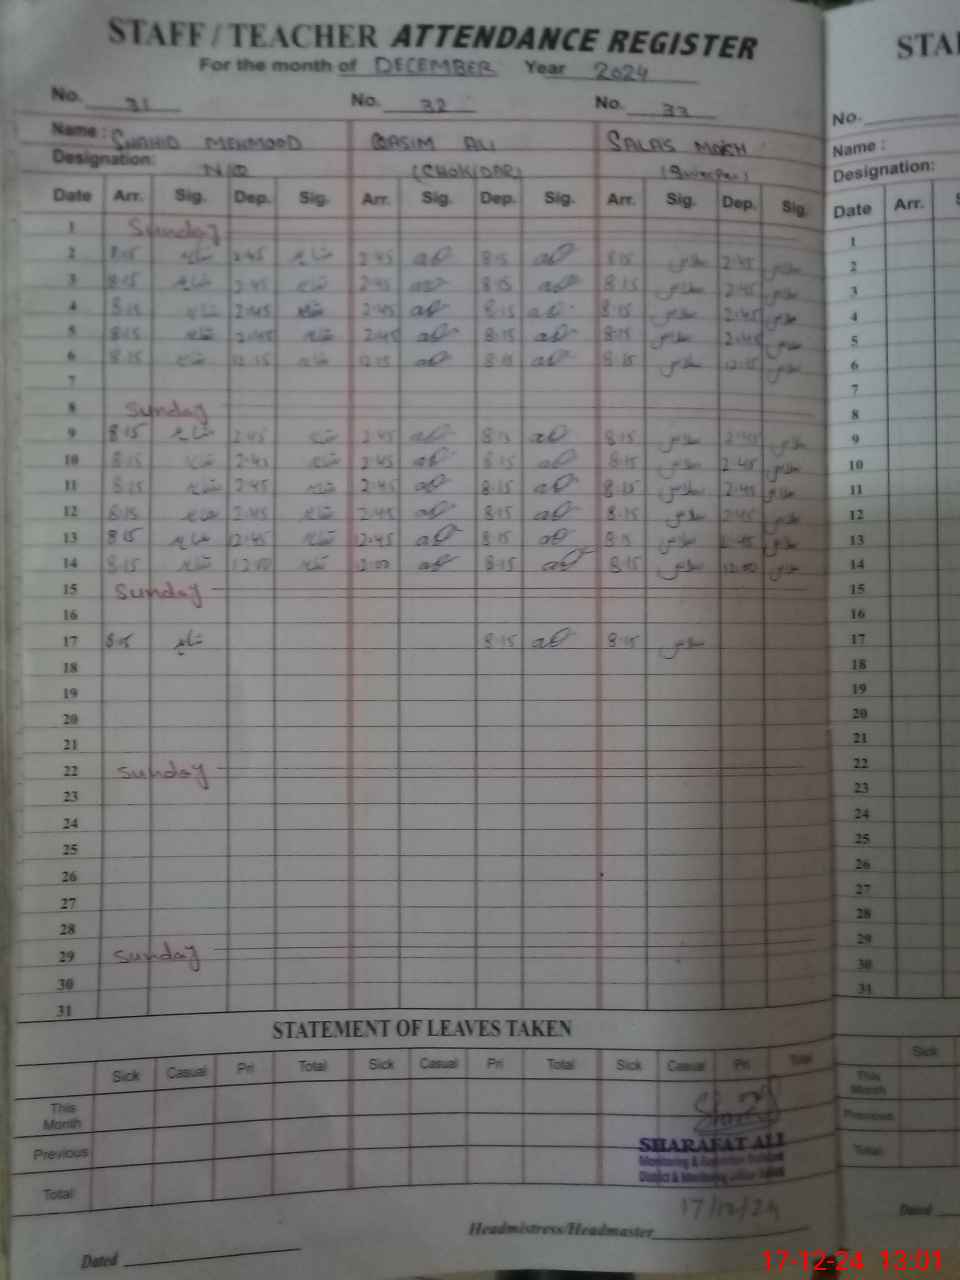 STAFF / TEACHER ATTENDANCE REGISTER
For the month of DECEMBER Year 2024
No. 31 No. 32 No. 33
Name : SHAHID MEHMOOD QASIM ALI SALAS MASIH
Designation: N/Q (CHOKIDAR)
Date Arr. Sig. Dep. Sig. Arr. Sig. Dep. Sig. Arr. Sig. Dep. Sig.
1 Sunday
2 8:15 شاہد 2:45 شاہد 2:45 8:15 8:15 سلاس 2:45 سلاس
3 8:15 شاہد 2:45 شاہد 2:45 8:15 8:15 سلاس 2:45 سلاس
4 8:15 شاہد 2:45 شاہد 2:45 8:15 8:15 سلاس 2:45 سلاس
5 8:15 شاہد 2:45 شاہد 2:45 8:15 8:15 سلاس 2:45 سلاس
6 8:15 شاہد 12:15 شاہد 12:15 8:15 8:15 سلاس 12:15 سلاس
7
8 Sunday
9 8:15 شاہد 2:45 شاہد 2:45 8:15 8:15 سلاس 2:45 سلاس
10 8:15 شاہد 2:45 شاہد 2:45 8:15 8:15 سلاس 2:45 سلاس
11 8:15 شاہد 2:45 شاہد 2:45 8:15 8:15 سلاس 2:45 سلاس
12 8:15 شاہد 2:45 شاہد 2:45 8:15 8:15 سلاس 2:45 سلاس
13 8:15 شاہد 12:45 شاہد 12:45 8:15 8:15 سلاس 12:45 سلاس
14 8:15 شاہد 12:00 شاہد 12:00 8:15 8:15 سلاس 12:00 سلاس
15 Sunday
16
17 8:15 شاہد 8:15 8:15 سلاس
18
19
20
21
22 Sunday
23
24
25
26
27
28
29 Sunday
30
31
STATEMENT OF LEAVES TAKEN
Sick Casual Pri Total Sick Casual Pri Total Sick Casual Pri Total
This Month
Previous
Total
SHARAFAT ALI
17/12/24
Headmistress/Headmaster
Dated
STA
No.
Name :
Designation:
Date Arr. S
1
2
3
4
5
6
7
8
9
10
11
12
13
14
15
16
17
18
19
20
21
22
23
24
25
26
27
28
29
30
31
Sick
This Month
Previous
Total
Dated
17-12-24 13:01